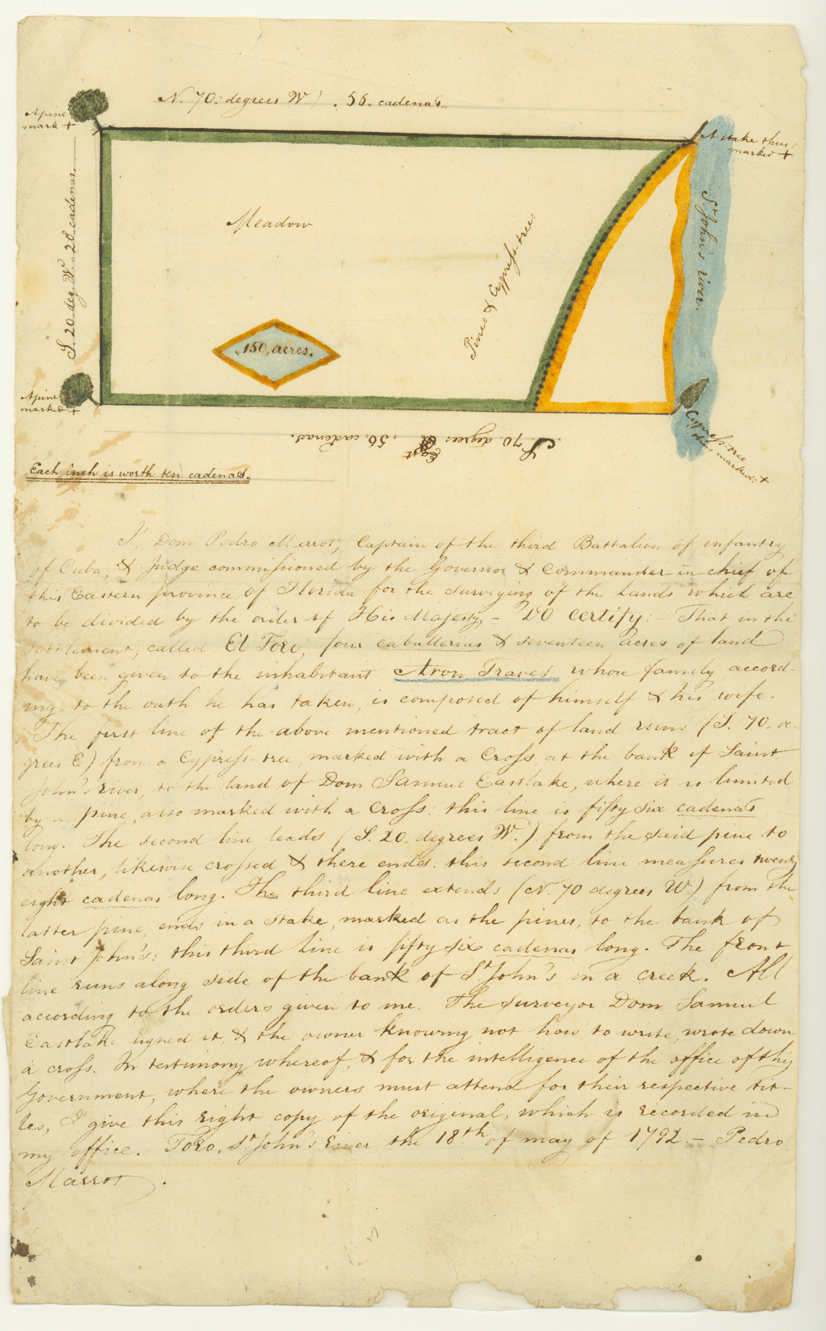 N. 70. degrees W) . 56. cadenas.
A pine
mark +
A stake thus
marked +
S. 20. deg. W. 28 cadenas.
St John's river.
Meadow
Pines & Cypress-trees
150, acres.
A pine
marked +
Cypress-tree
thus marked +
S. 70 degrees East . 56 cadenas.
Each inch is worth ten cadenas.
I Dom Pedro Marrot, Captain of the third Battalion of infantry
of Cuba, & Judge commissioned by the Governor & Commander in chief of
this Eastern province of Florida for the surveying of the Lands which are
to be divided by the order of His Majesty - Do certify: - That in the
settlement, called El Toro, four caballerias & seventeen acres of land
have been given to the inhabitant Aron Traves whose family accord-
ing to the oath he has taken, is composed of himself & his wife.
The first line of the above mentioned tract of land runs (S. 70. de-
grees E) from a Cypress-tree, marked with a Cross at the bank of Saint
John's River, to the land of Dom Samuel Eastlake, where it is limited
by a pine, also marked with a Cross: this line is fifty six cadenas
long. The second line leads (S. 20. degrees W.) from the said pine to
another, likewise crossed & there ends: this second line measures twenty
eight cadenas long. The third line extends (N. 70 degrees W) from the
latter pine, ends in a stake, marked as the pines, to the bank of
Saint John's: this third line is fifty six cadenas long. The front
line runs along side of the bank of St John's in a creek. All
according to the orders given to me. The surveyor Dom Samuel
Eastlake signed it, & the owner knowing not how to write, wrote down
a cross. In testimony whereof, & for the intelligence of the office of this
Government, where the owners must attend for their respective tit-
les, I give this right copy of the original, which is recorded in
my office. Toro, St John's River the 18th of may of 1792 - Pedro
Marrot.